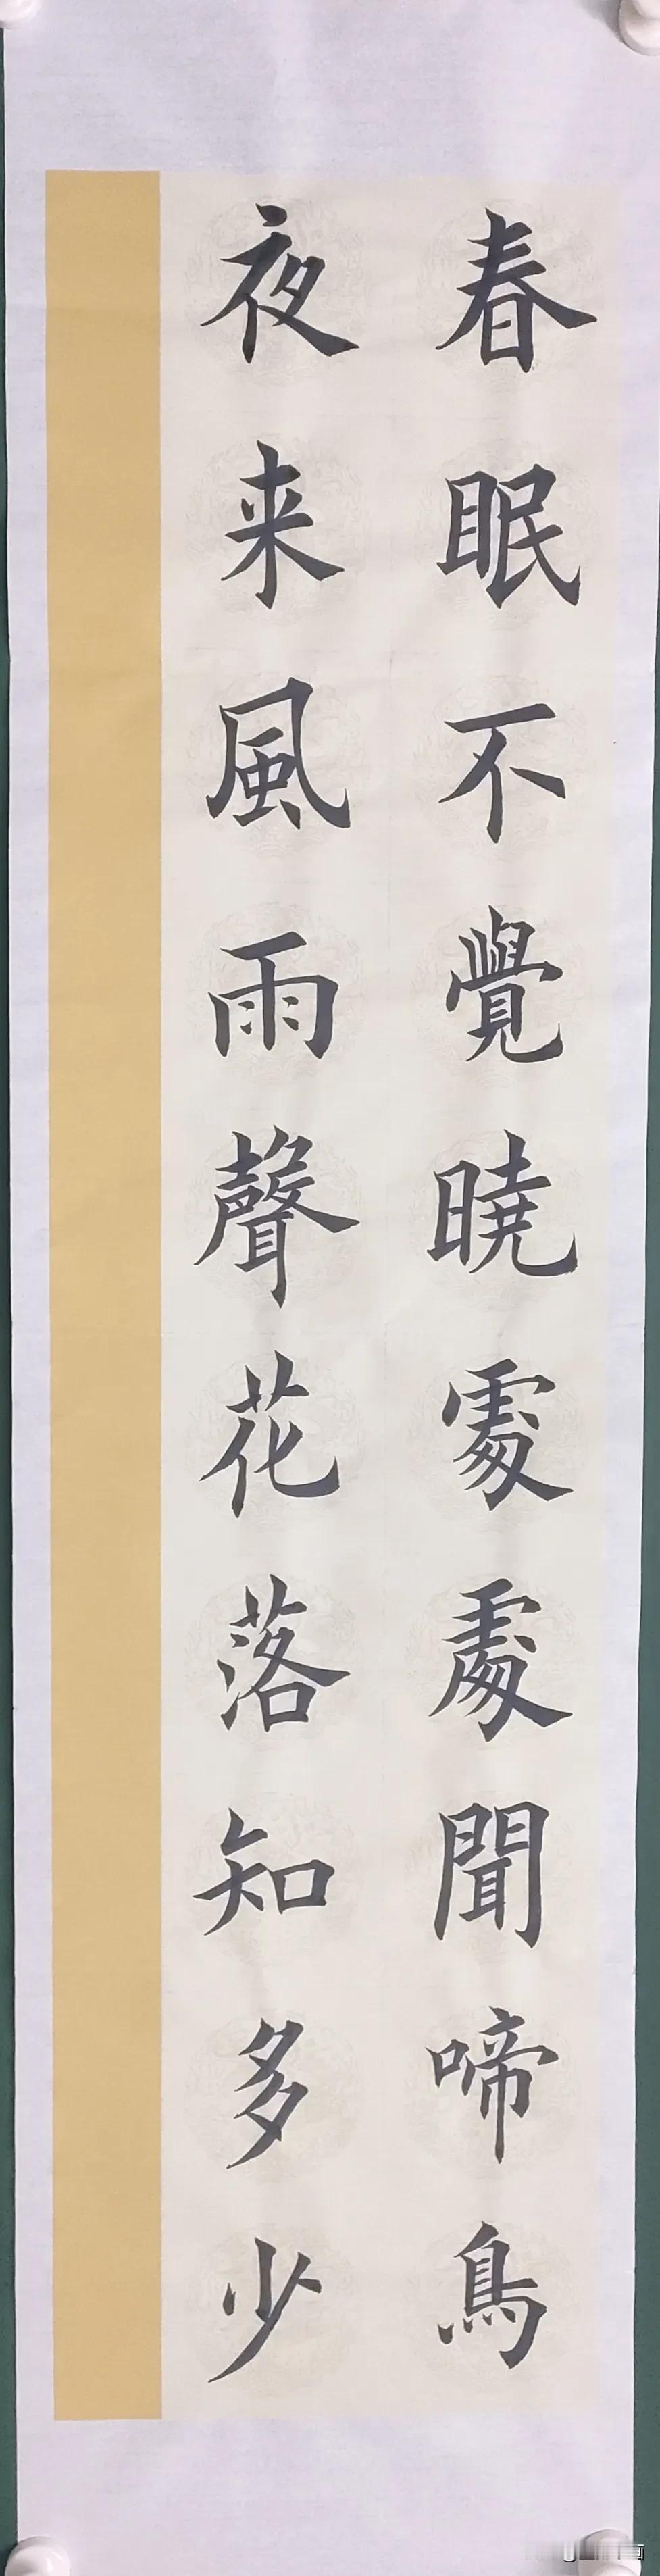 春眠不覺暁處處聞啼鳥
夜来風雨聲花落知多少